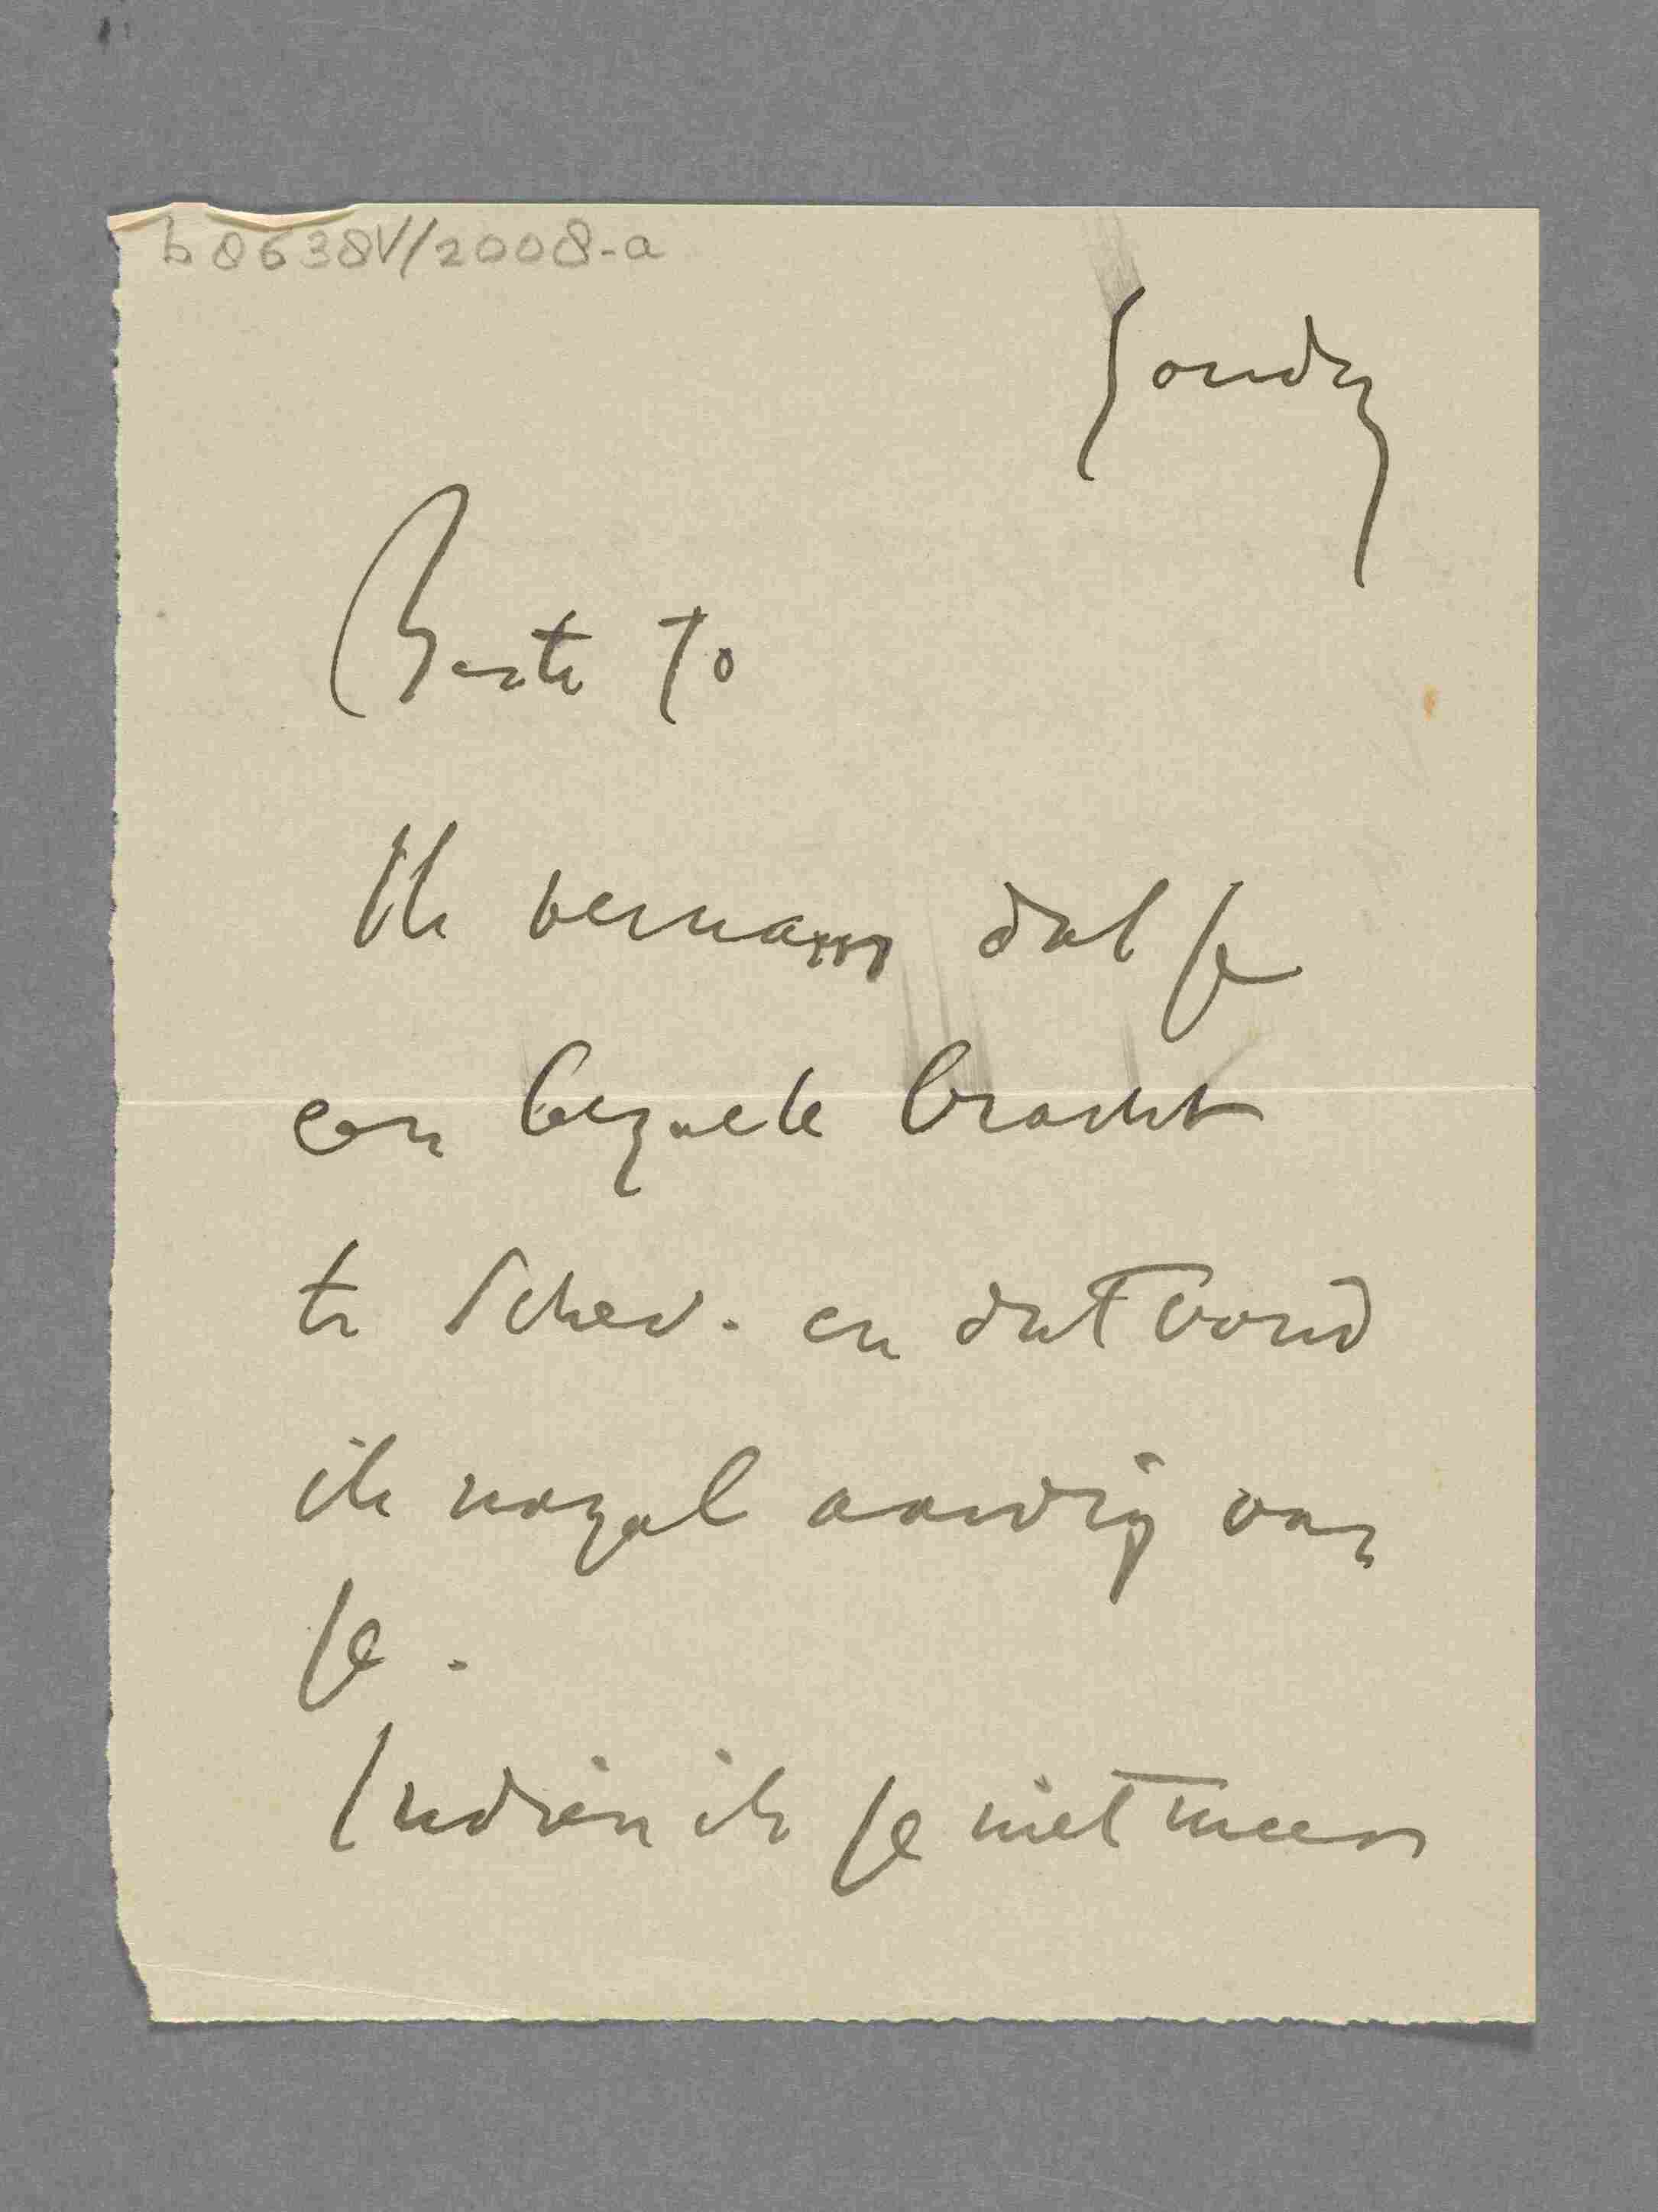 b8638V/2008-a
Zondag
Beste Jo
Ik vernam dat je
een bezoek bracht
te Schev. en dat vond
ik nogal aardig van
je.
Indien ik je niet meer